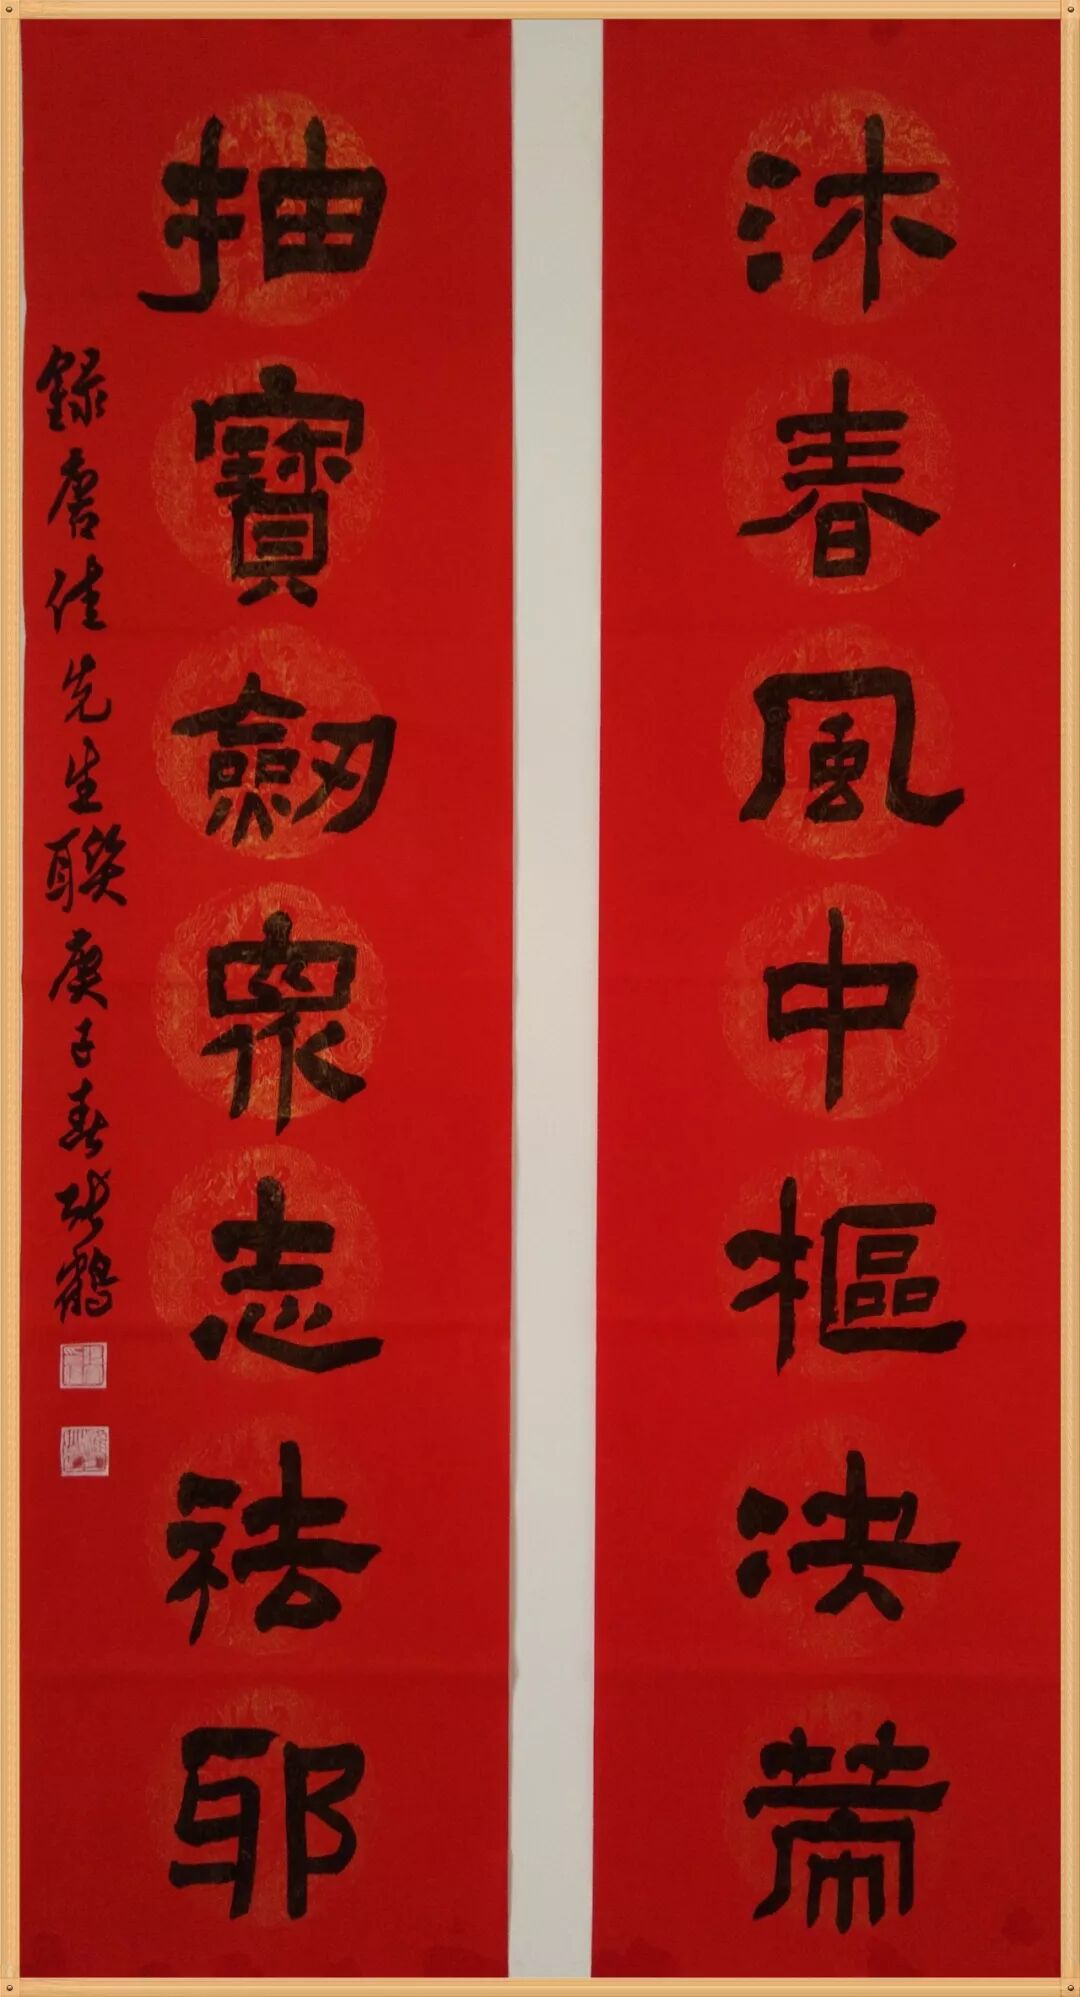 沐春風中樞決策
抽寶劔眾志祛邪
錄唐佳先生聯庚子春张鶴